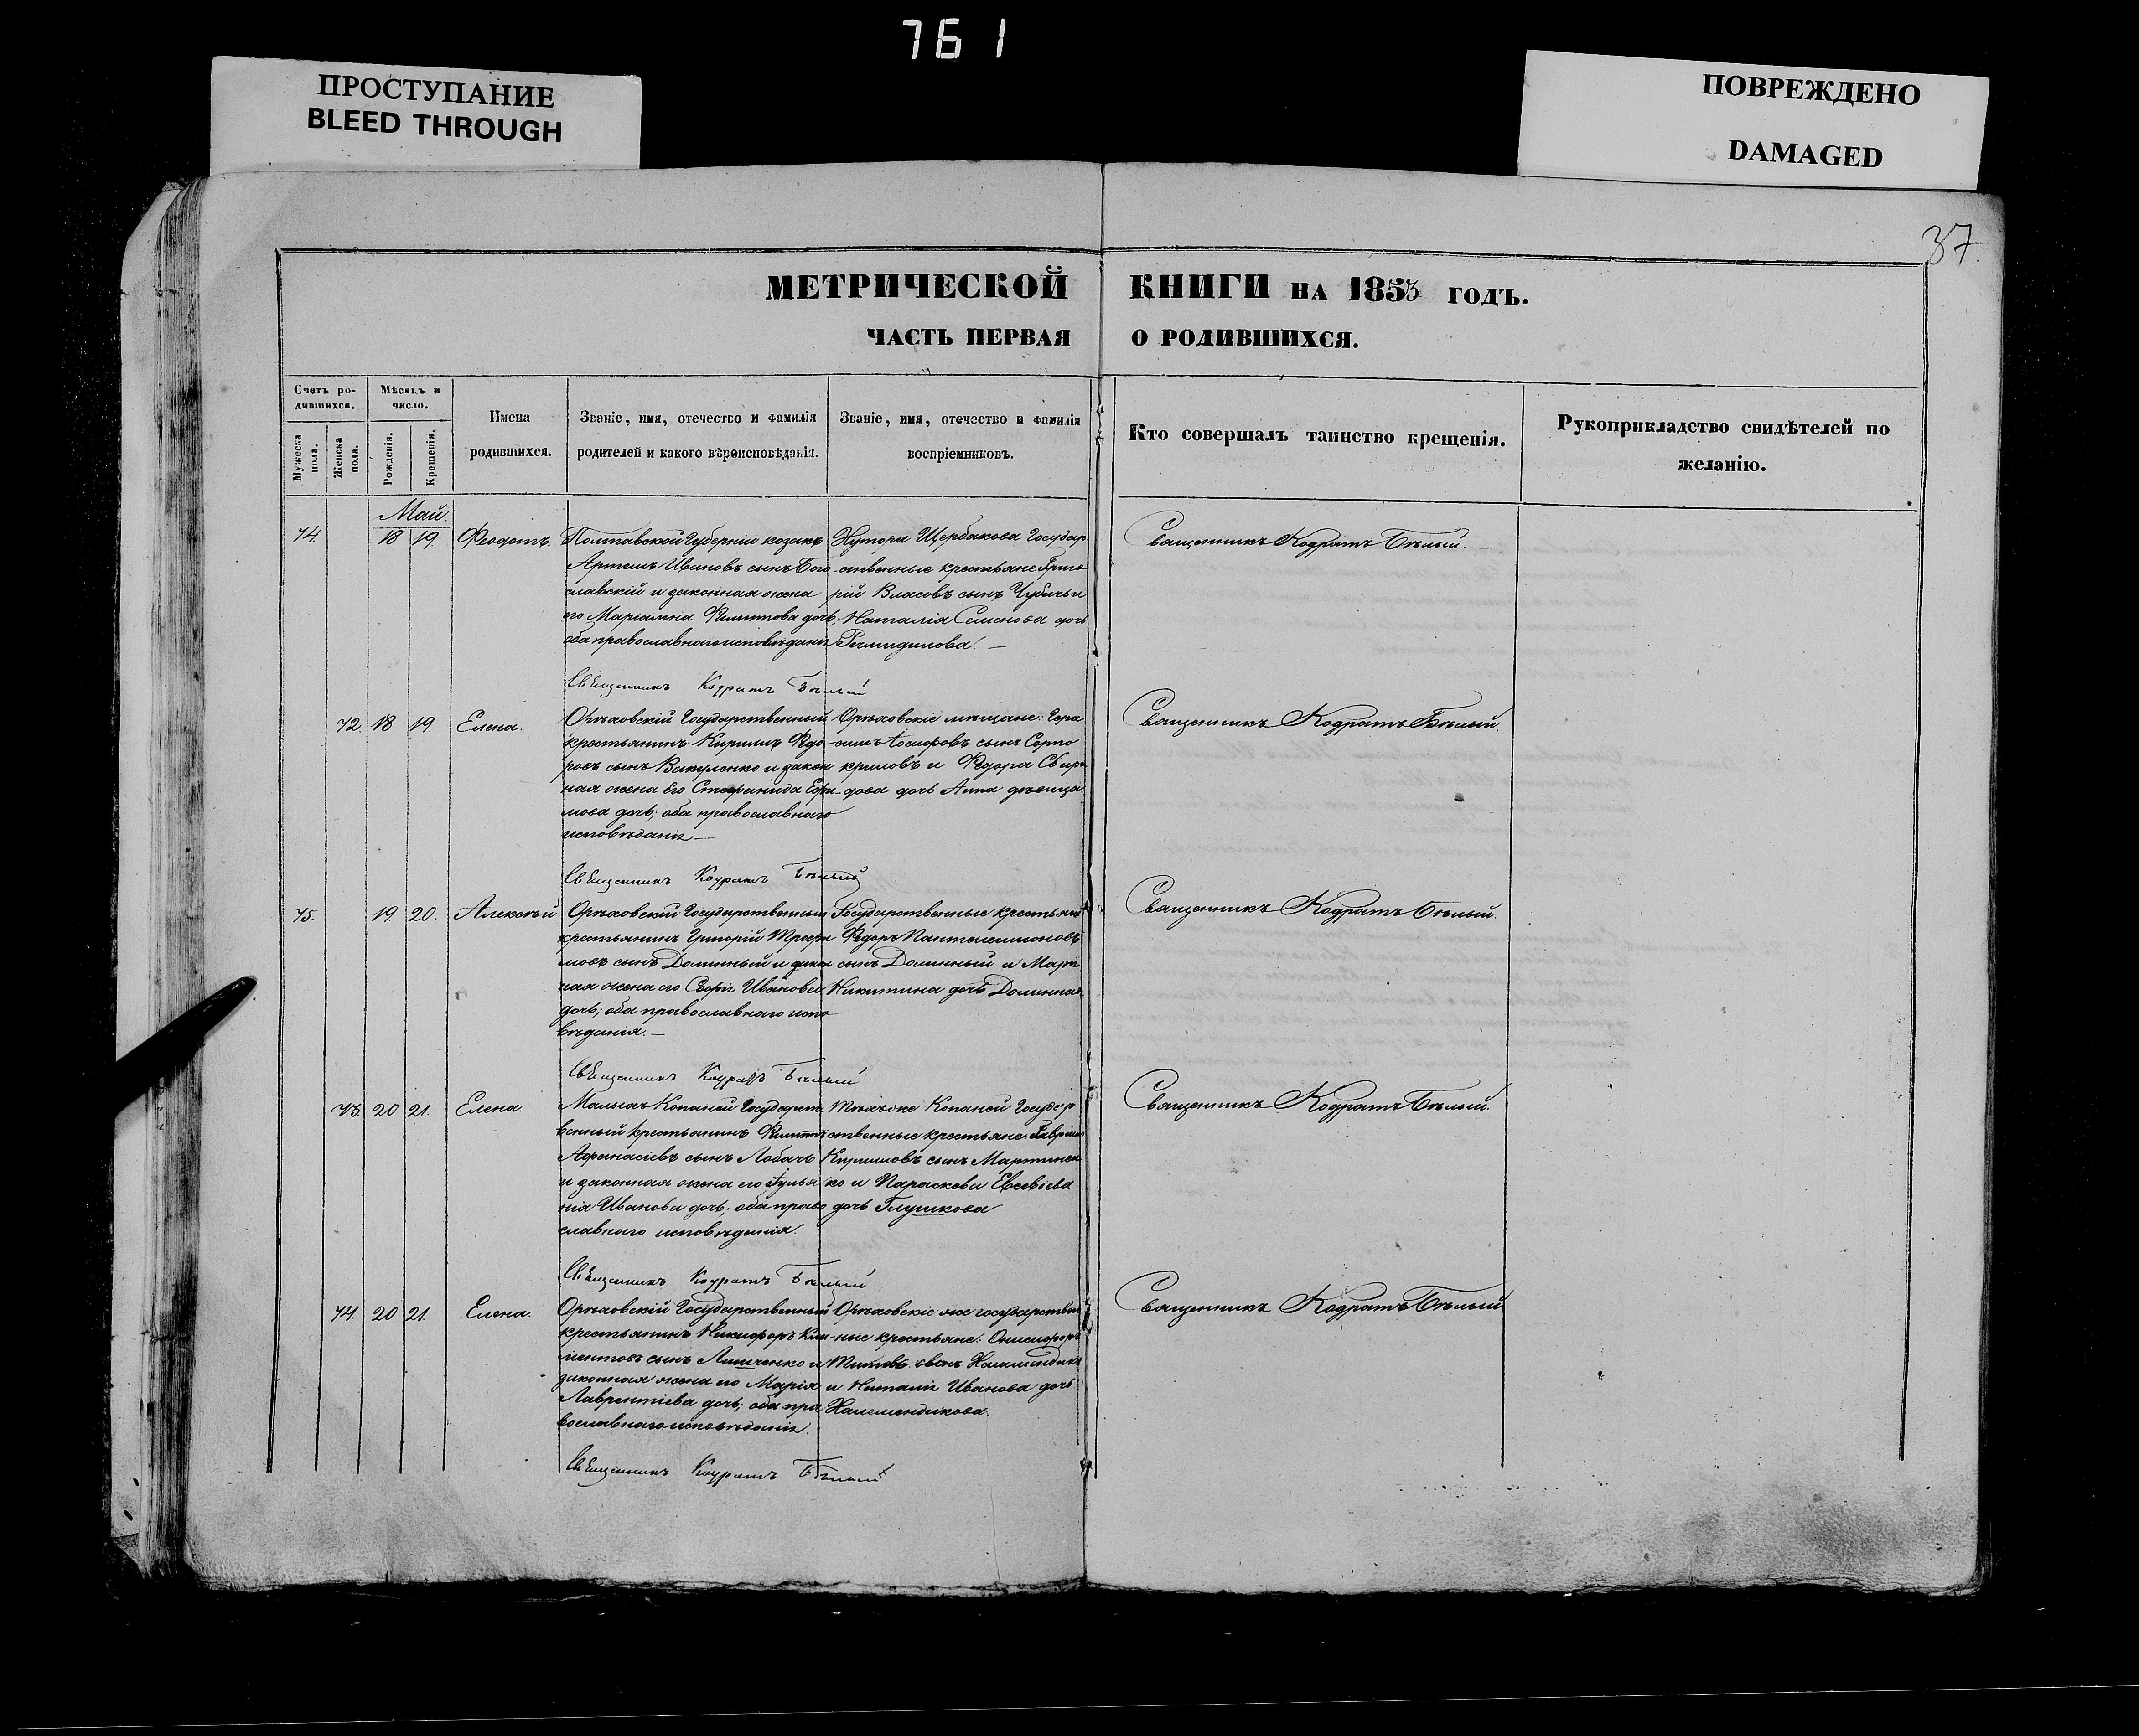 761
ПРОСТУПАНИЕ
BLEED THROUGH
ПОВРЕЖДЕНО
DAMAGED
37.
МЕТРИЧЕСКОЙ КНИГИ НА 1853 ГОДЪ.
ЧАСТЬ ПЕРВАЯ О РОДИВШИХСЯ.
Счетъ ро-
дившихся.
Мужеска пола.
Женска пола.
Мѣсяцъ и
число.
Рожденія.
Крещенія.
Имена
родившихся.
Званіе, имя, отечество и фамилія
родителей и какого вѣроисповѣданія.
Званіе, имя, отечество и фамилія
воспріемниковъ.
Кто совершалъ таинство крещенія.
Рукоприкладство свидѣтелей по
желанію.
Май.
74. 18 19. Феодотъ.
Полтавской Губерніи козакъ
Артемъ Ивановъ сынъ Бого-
славскій и законная жена
его Маріамна Филиппова дочь;
оба православнаго исповѣданія
Хутора Щербакова Государ
ственные крестьяне Григо
рій Власовъ сынъ и
Наталія Семенова дочь
Священникъ Кодратъ Бѣлый.
Священникъ Кодратъ Бѣлый
72. 18 19. Елена.
Орѣховскій Государственный
крестьянинъ Кирилъ Ѳедо
ровъ сынъ Вакуленко и закон
ная жена его Стефанида Ефи
мова дочь; оба православнаго
исповѣданія
Орѣховскіе мѣщане: Гера
симъ Іосифовъ сынъ Серпо
криловъ и Ѳедора Свири
дова дочь Анна дѣвица.
Священникъ Кодратъ Бѣлый.
Священникъ Кодратъ Бѣлый
75. 19. 20. Алексѣй
Орѣховскій Государственный
крестьянинъ Григорій Трофи
мовъ сынъ Долинный и закон
ная жена его Софія Иванова
дочь; оба православнаго испо
вѣданія.
Государственные крестьяне
Ѳедоръ Пантелеимоновъ
сынъ Долинный и Марія
Никитина дочь Долинная
Священникъ Кодратъ Бѣлый.
Священникъ Кодратъ Бѣлый
73. 20 21. Елена.
Малыхъ Копаней Государст
венный крестьянинъ Филиппъ
Афанасіевъ сынъ Лобачъ
и законная жена его Іулья
нія Иванова дочь; оба право
славнаго исповѣданія.
Тѣхъ же Копаней Государ
ственные крестьяне: Гавріилъ
Кириловъ сынъ Мартинен
ко и Параскева Евсевіева
дочь Глушкова
Священникъ Кодратъ Бѣлый.
Священникъ Кодратъ Бѣлый
74. 20 21. Елена.
Орѣховскій Государственный
крестьянинъ Никифоръ Кли
ментовъ сынъ Литченко и
законная жена его Марія
Лаврентіева дочь; оба пра
вославнаго исповѣданія.
Орѣховскіе же государствен
ные крестьяне: Онисифоръ
Титовъ сынъ
и Наталія Иванова дочь
Священникъ Кодратъ Бѣлый
Священникъ Кодратъ Бѣлый